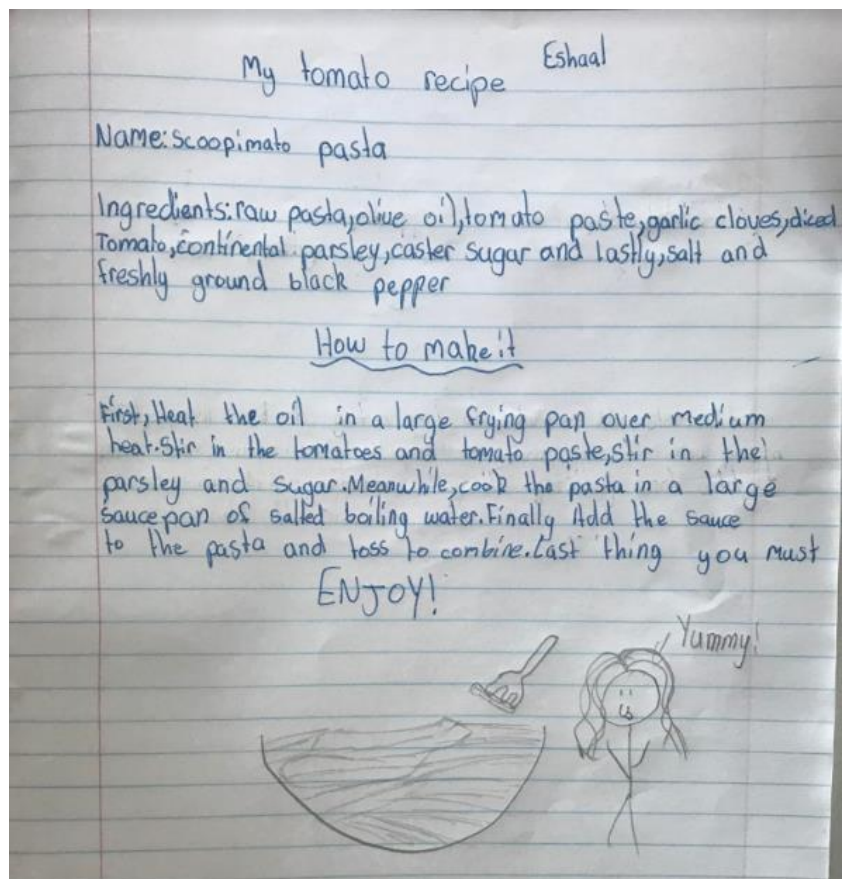 Eshaal
My tomato recipe
Name:Scoopimato pasta
Ingredients:raw pasta,olive oil,tomato paste,garlic cloves,diced
Tomato,continental parsley,caster sugar and lastly,salt and
freshly ground black pepper
How to make it
First,Heat the oil in a large frying pan over medium
heat.Stir in the tomatoes and tomato paste,stir in the
parsley and sugar.Meanwhile,cook the pasta in a large
saucepan of salted boiling water.Finally Add the sauce
to the pasta and toss to combine.Last thing you must
ENJOY!
Yummy!